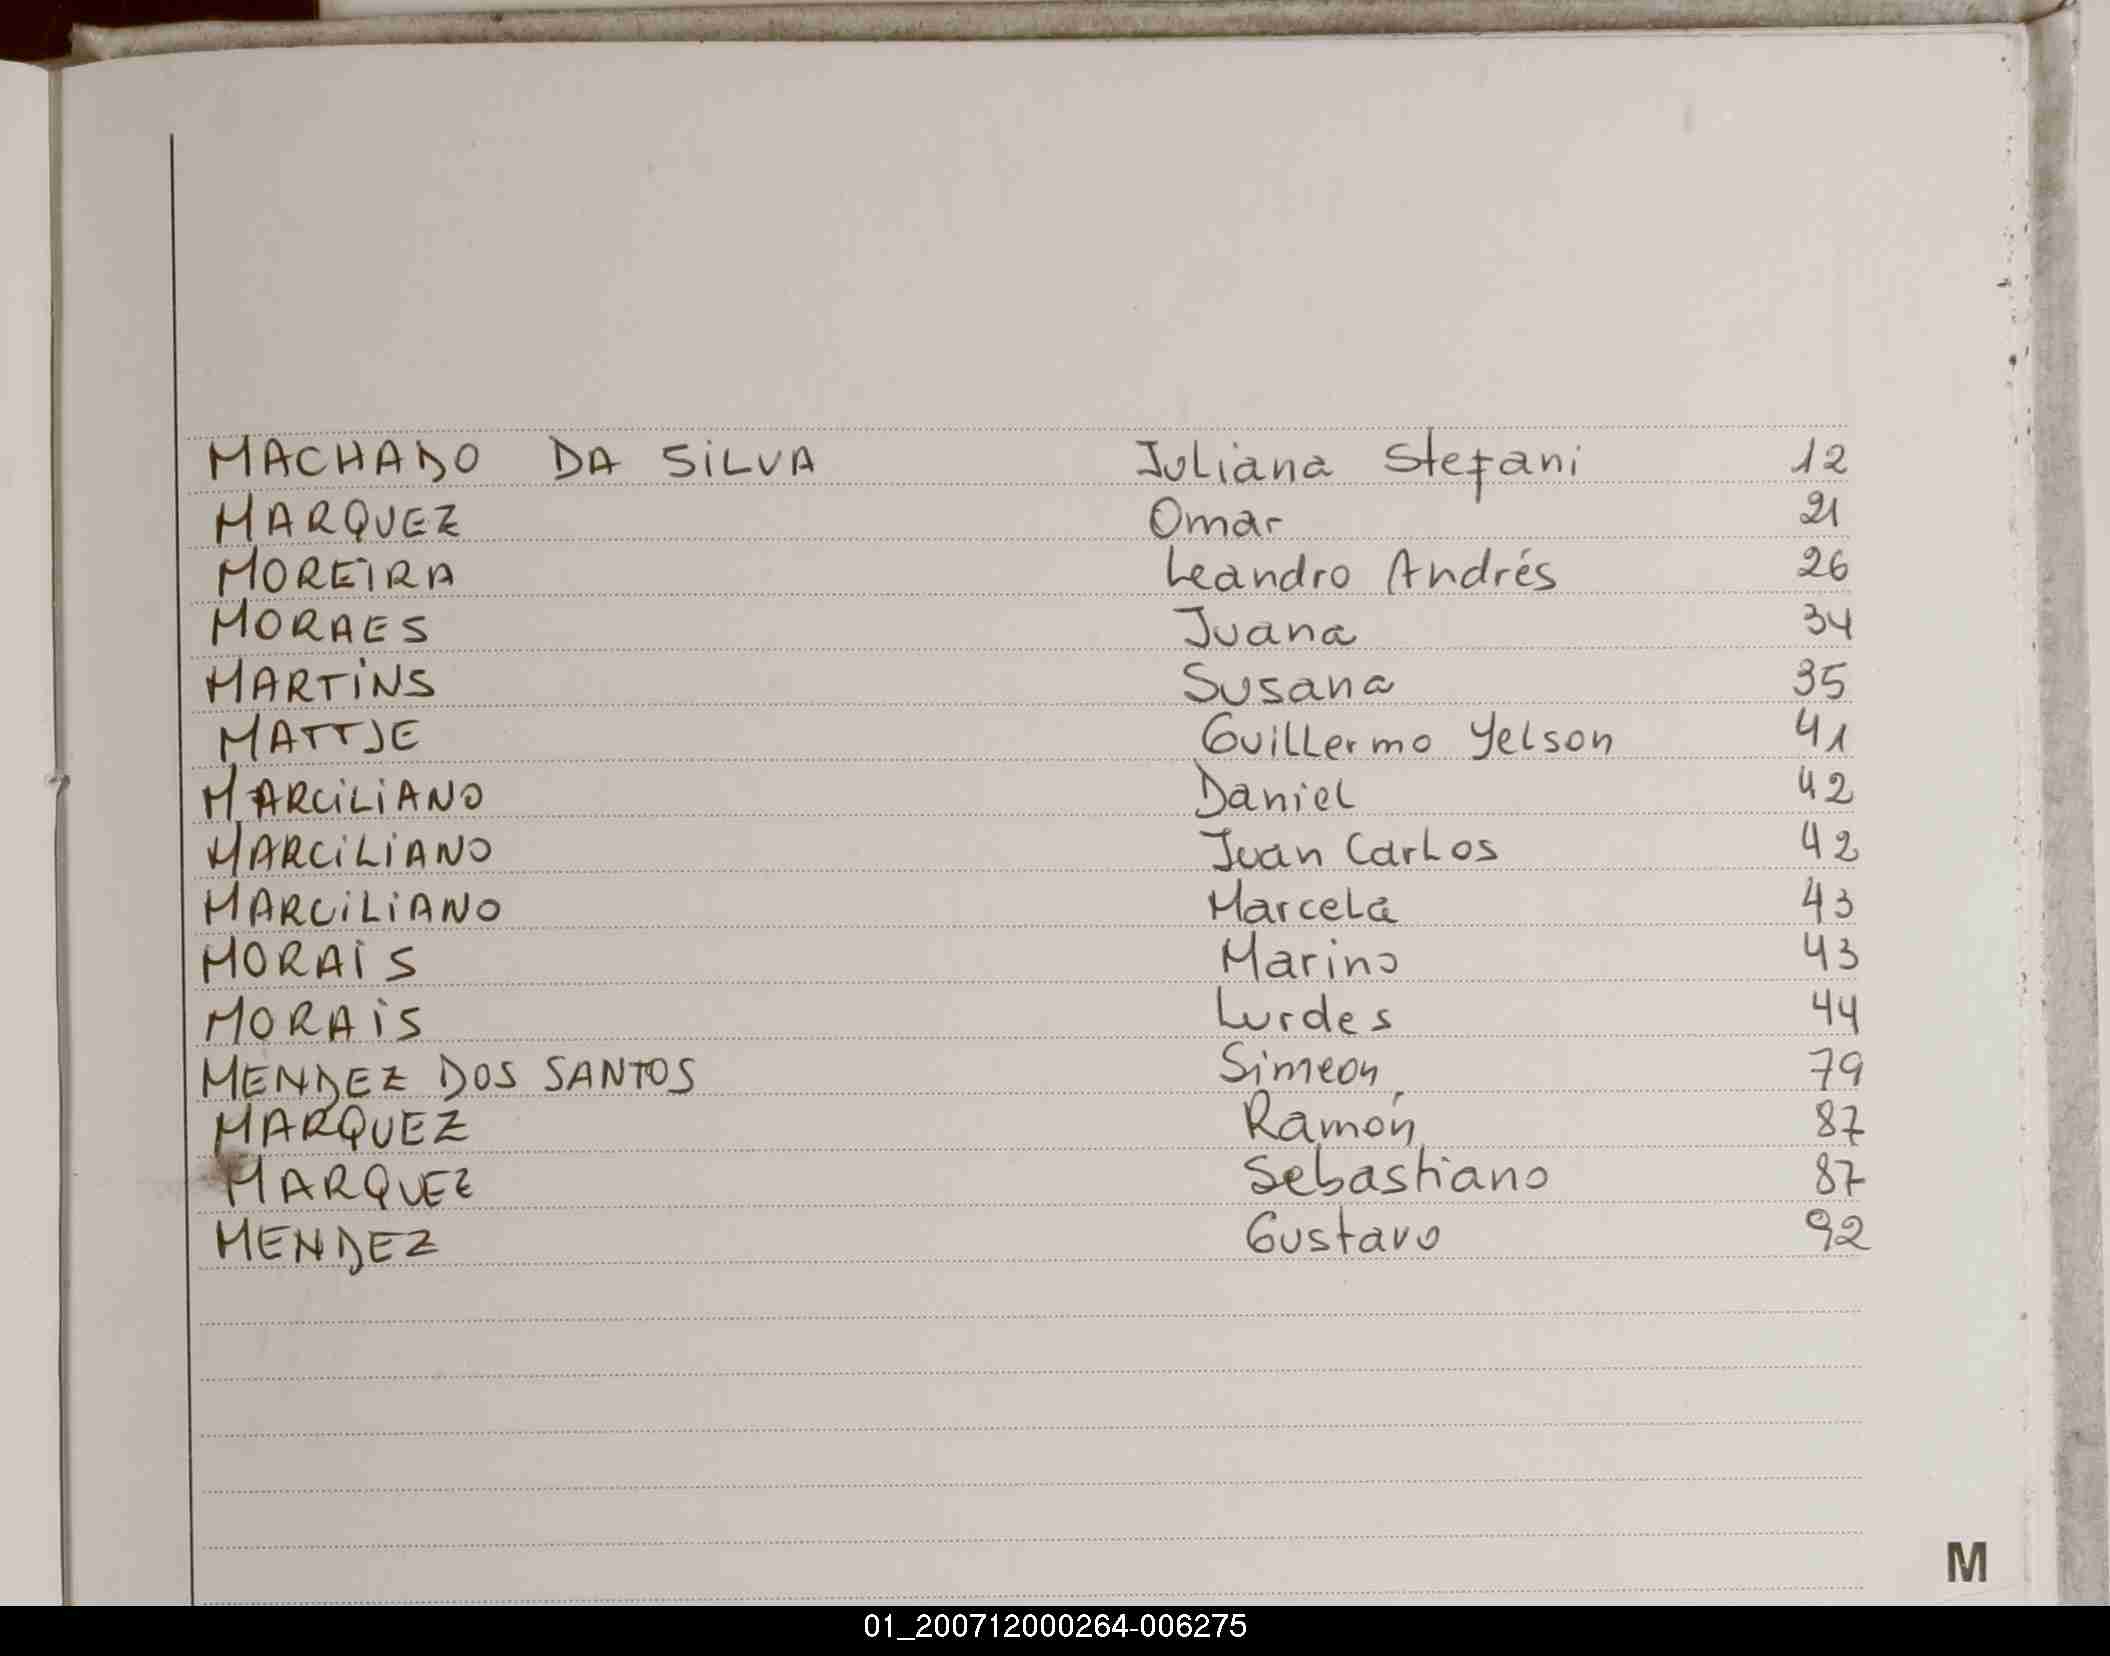 MACHADO DA SiLVA Juliana Stefani 12
MARQUEZ Omar 21
MOREIRA Leandro Andrés 26
MORAES Juana 34
MARTiNS Susana 35
MATTJE Guillermo Yelson 41
MARCiLiANO Daniel 42
MARCiLiANO Juan Carlos 42
MARCiLiANO Marcela 43
MORAiS Marino 43
MORAiS Lurdes 44
MENDEZ DOS SANTOS Simeon 79
MARQUEZ Ramón 87
MARQUEZ Sebastiano 87
MENDEZ Gustavo 92
M
01_200712000264-006275